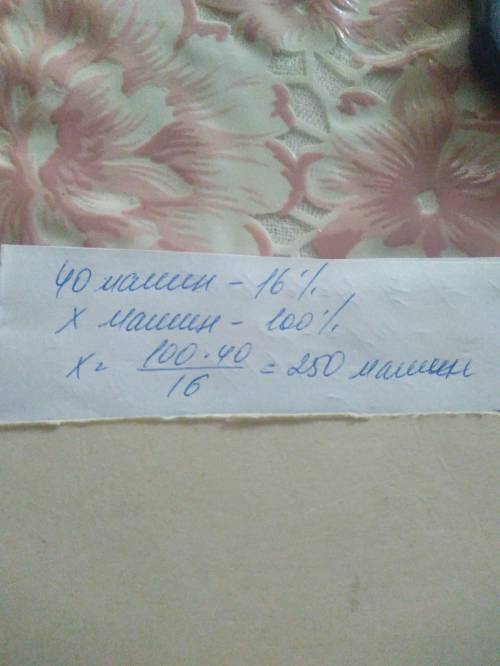 40 машин - 16%
х машин - 100%
х = 100·40/16 = 250 машин